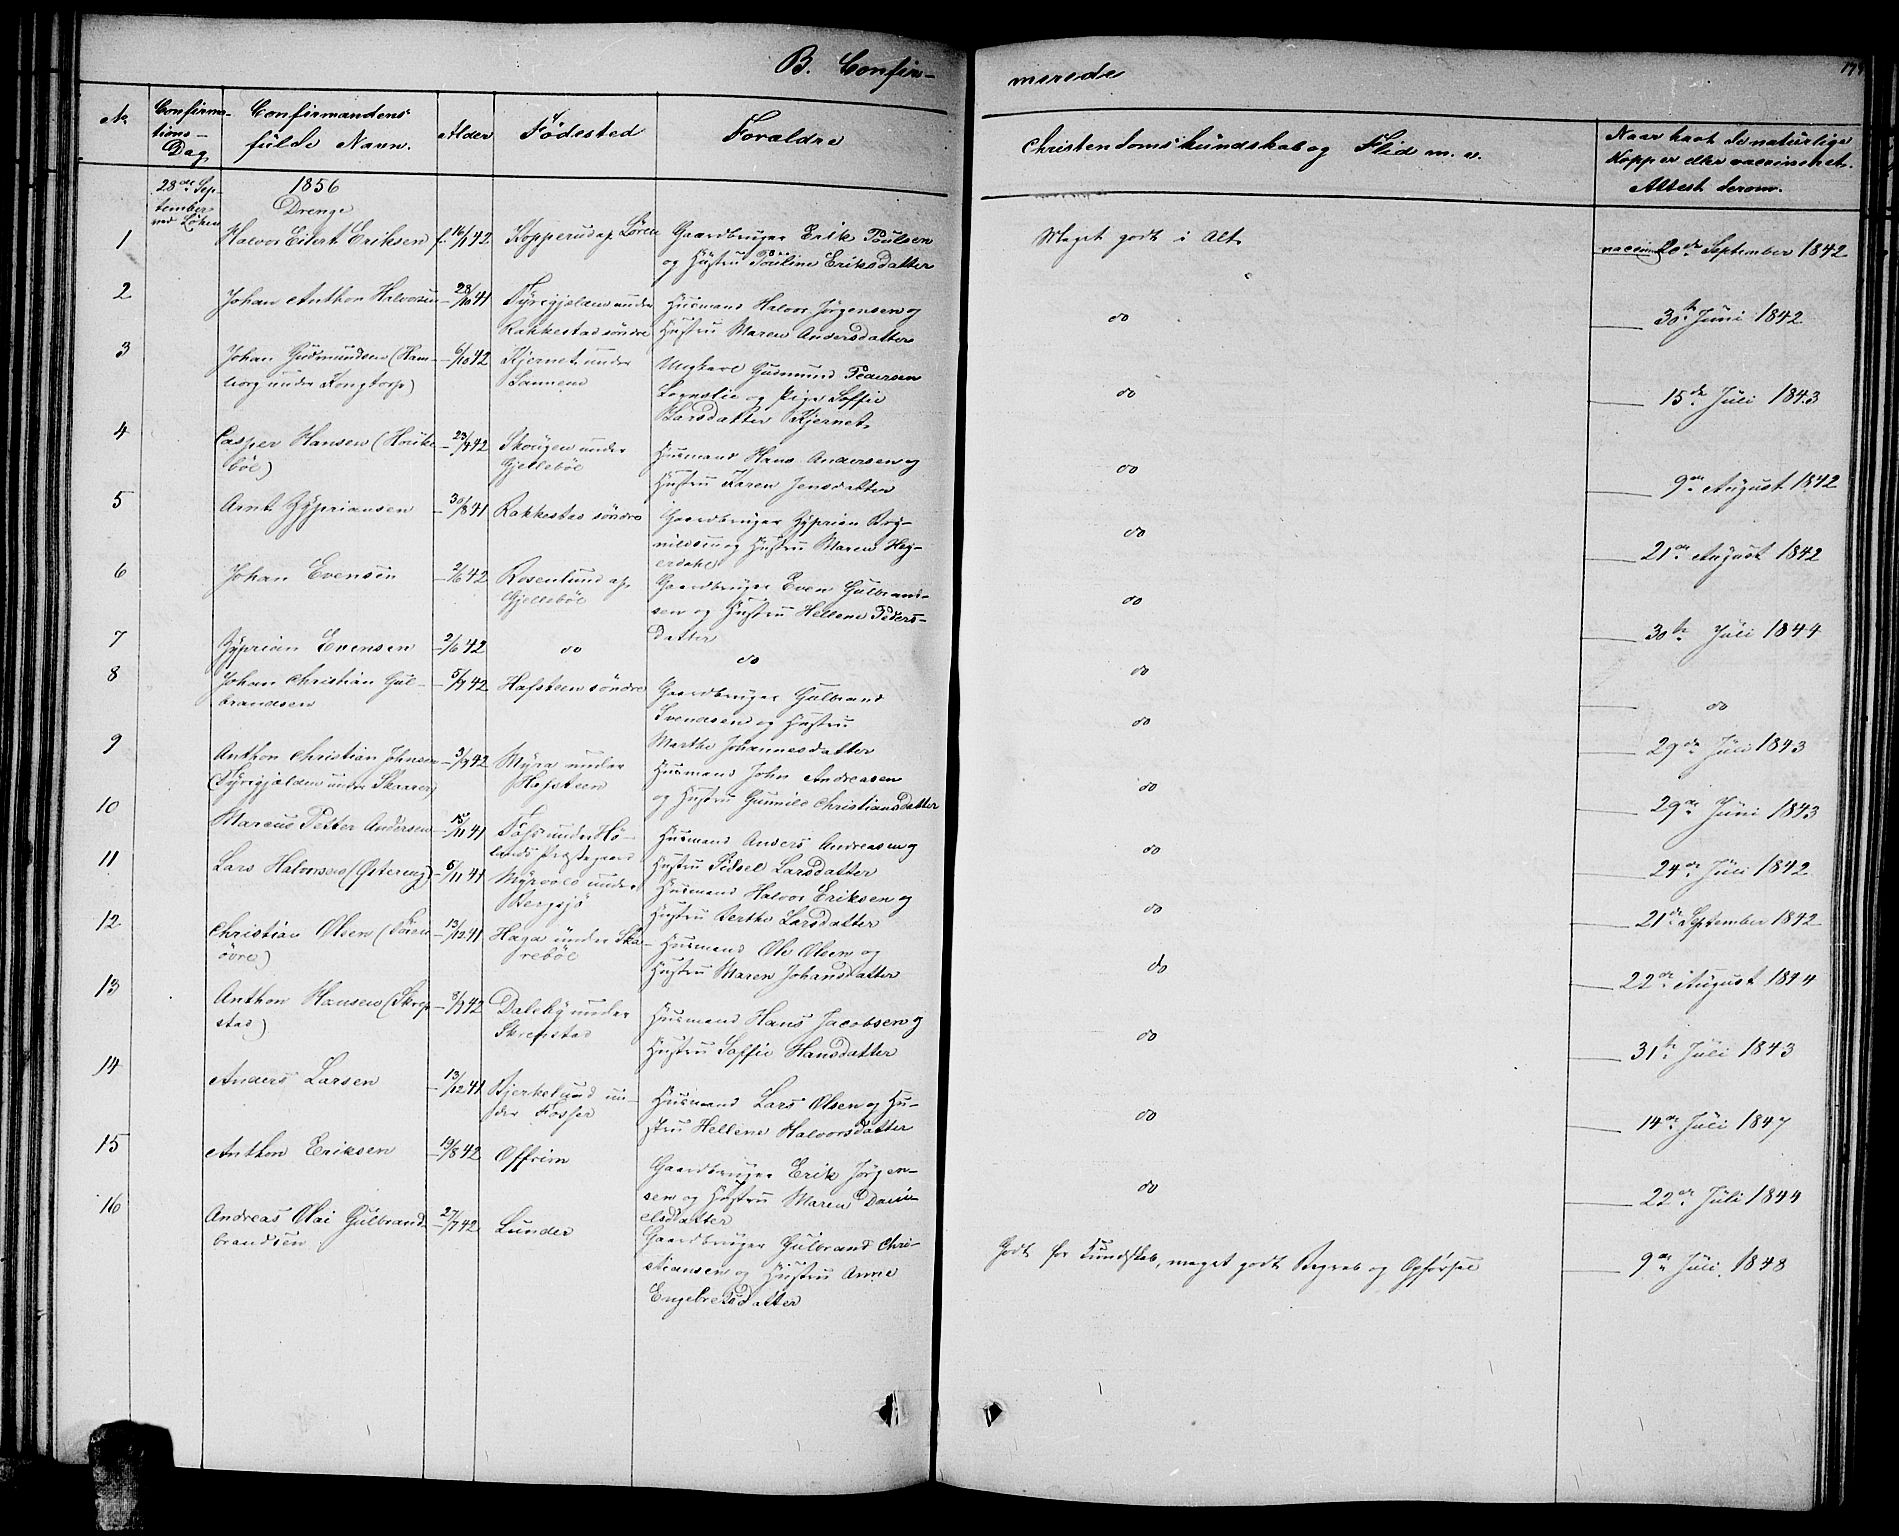 B. Confir-
merede
No
Confirma-
tions-
Dag
Confirmandens
fulde Navn.
Alder
Fødested
Forældre
Christendomskundskab og Flid m. v.
Naar havt de naturlige
Kopper eller vaccineret.
Attest derom.
28de Sep-
tember
ved Løken
1856
Drenge
1 Halvor Eilert Eriksen f. 16/1 42 Kopperud af Løren Gaardbruger Erik Poulsen
og Hustru Pauline Eriksdatter
Meget godt i Alt.
vaccine 20de September 1842
2 Johan Anthon Halvorsen - 28/10 41 Tyrigjelden under
Rakkestad søndre
Husmand Halvor Jørgensen og
Hustru Maren Andersdatter
do
30te Juni 1842
3 Johan Gudmundsen (Ham-
borg under Kongtorp) - 6/10 42 Kjernet under
Lannem
Ungkarl Gudmund Pedersen
Lognslie og Pige Soffie
Larsdatter Kjernet
do
15de Juli 1843
4 Casper Hansen (Houke-
böl) - 23/7 42 Skougen under
Gjelleböl
Husmand Hans Andersen og
Hustru Karen Jensdatter
do
9de August 1842
5 Arnt Zypriansen - 30/8 41 Rakkestad söndre
Gaardbruger Zyprian Bry-
nildsen og Hustru Maren Hey-
erdahl
do
21de August 1842
6 Johan Evensen - 2/6 42 Rosenlund af
Gjelleböl
Gaardbruger Even Gulbrand-
sen og Hustru Hellene Peders-
datter
do
30te Juli 1844
7 Zyprian Evensen - 2/6 42 do
do
do
do
8 Johan Christian Gul-
brandsen - 5/7 42 Hafsteen söndre
Gaardbruger Gulbrand
Svendsen og Hustru
Marthe Johannesdatter
do
29de Juli 1843
9 Anthon Christian Johnsen
(Tyrigjelden under Skaarer) - 3/9 42 Myra under
Hafsteen
Husmand John Andreasen
og Hustru Gunnild Christiansdatter
do
29de Juni 1843
10 Marcus Petter Andersen - 15/11 41 Tofs under Hö-
lands Præstegaard
Husmand Anders Andreasen og
Hustru Sidsel Larsdatter
do
24de Juli 1842
11 Lars Halvorsen (Östereng) - 6/11 41 Myrvold under
Bergsjö
Husmand Halvor Eriksen og
Hustru Berthe Larsdatter
do
21de September 1842
12 Christian Olsen (Tuen
övre) - 13/12 41 Haga under Ska-
reböl
Husmand Ole Olsen og
Hustru Maren Johansdatter
do
22de August 1844
13 Anthon Hansen (Skrep-
stad) - 8/9 42 Dalsby under
Skrepstad
Husmand Hans Jacobsen og
Hustru Soffie Hansdatter
do
31te Juli 1843
14 Anders Larsen - 13/12 41 Bjerkelund un-
der Fosser
Husmand Lars Olsen og Hu-
stru Hellene Halvorsdatter
do
14de Juli 1847
15 Anthon Eriksen - 19/8 42 Offrim
Gaardbruger Erik Jörgen-
sen og Hustru Maren Dani-
elsdatter
do
22de Juli 1844
16 Andreas Olai Gulbrand-
brandsen - 27/7 42 Lunder
Gaardbruger Gulbrand Chri-
stiansen og Hustru Anne
Engebretsdatter
Godt for Kundskab, meget godt Begreb og Opførsel
9de Juli 1848